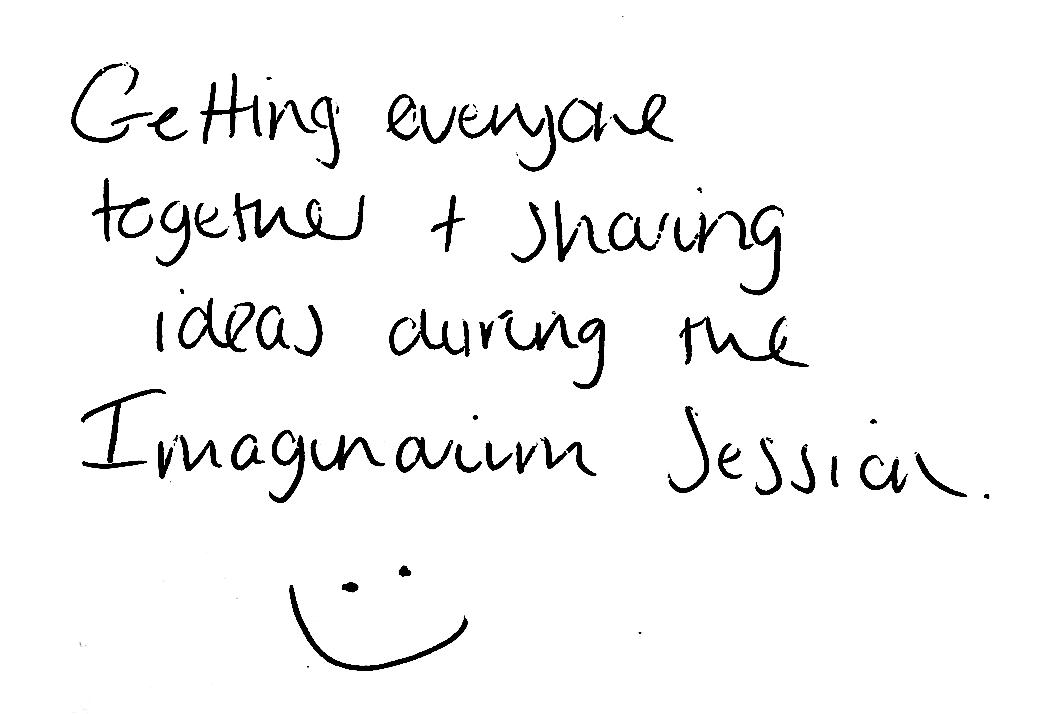 Getting everyone
together + sharing
ideas during the
Imaginarium Session.